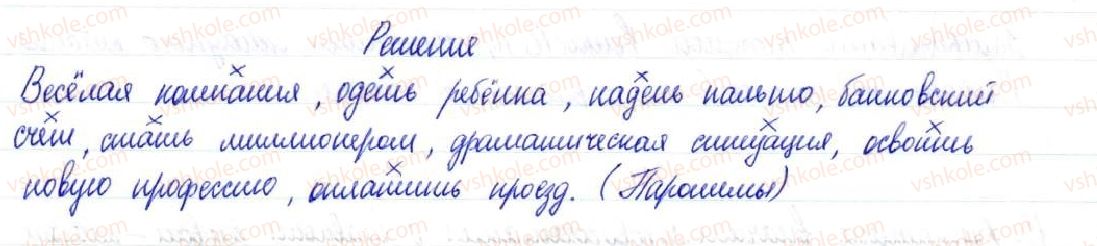 Решение
Весёлая компания, одеть ребёнка, надень пальто, банковский
счёт, стать миллионером, драматическая ситуация, освоить
новую профессию, оплатить проезд. (Паронимы)